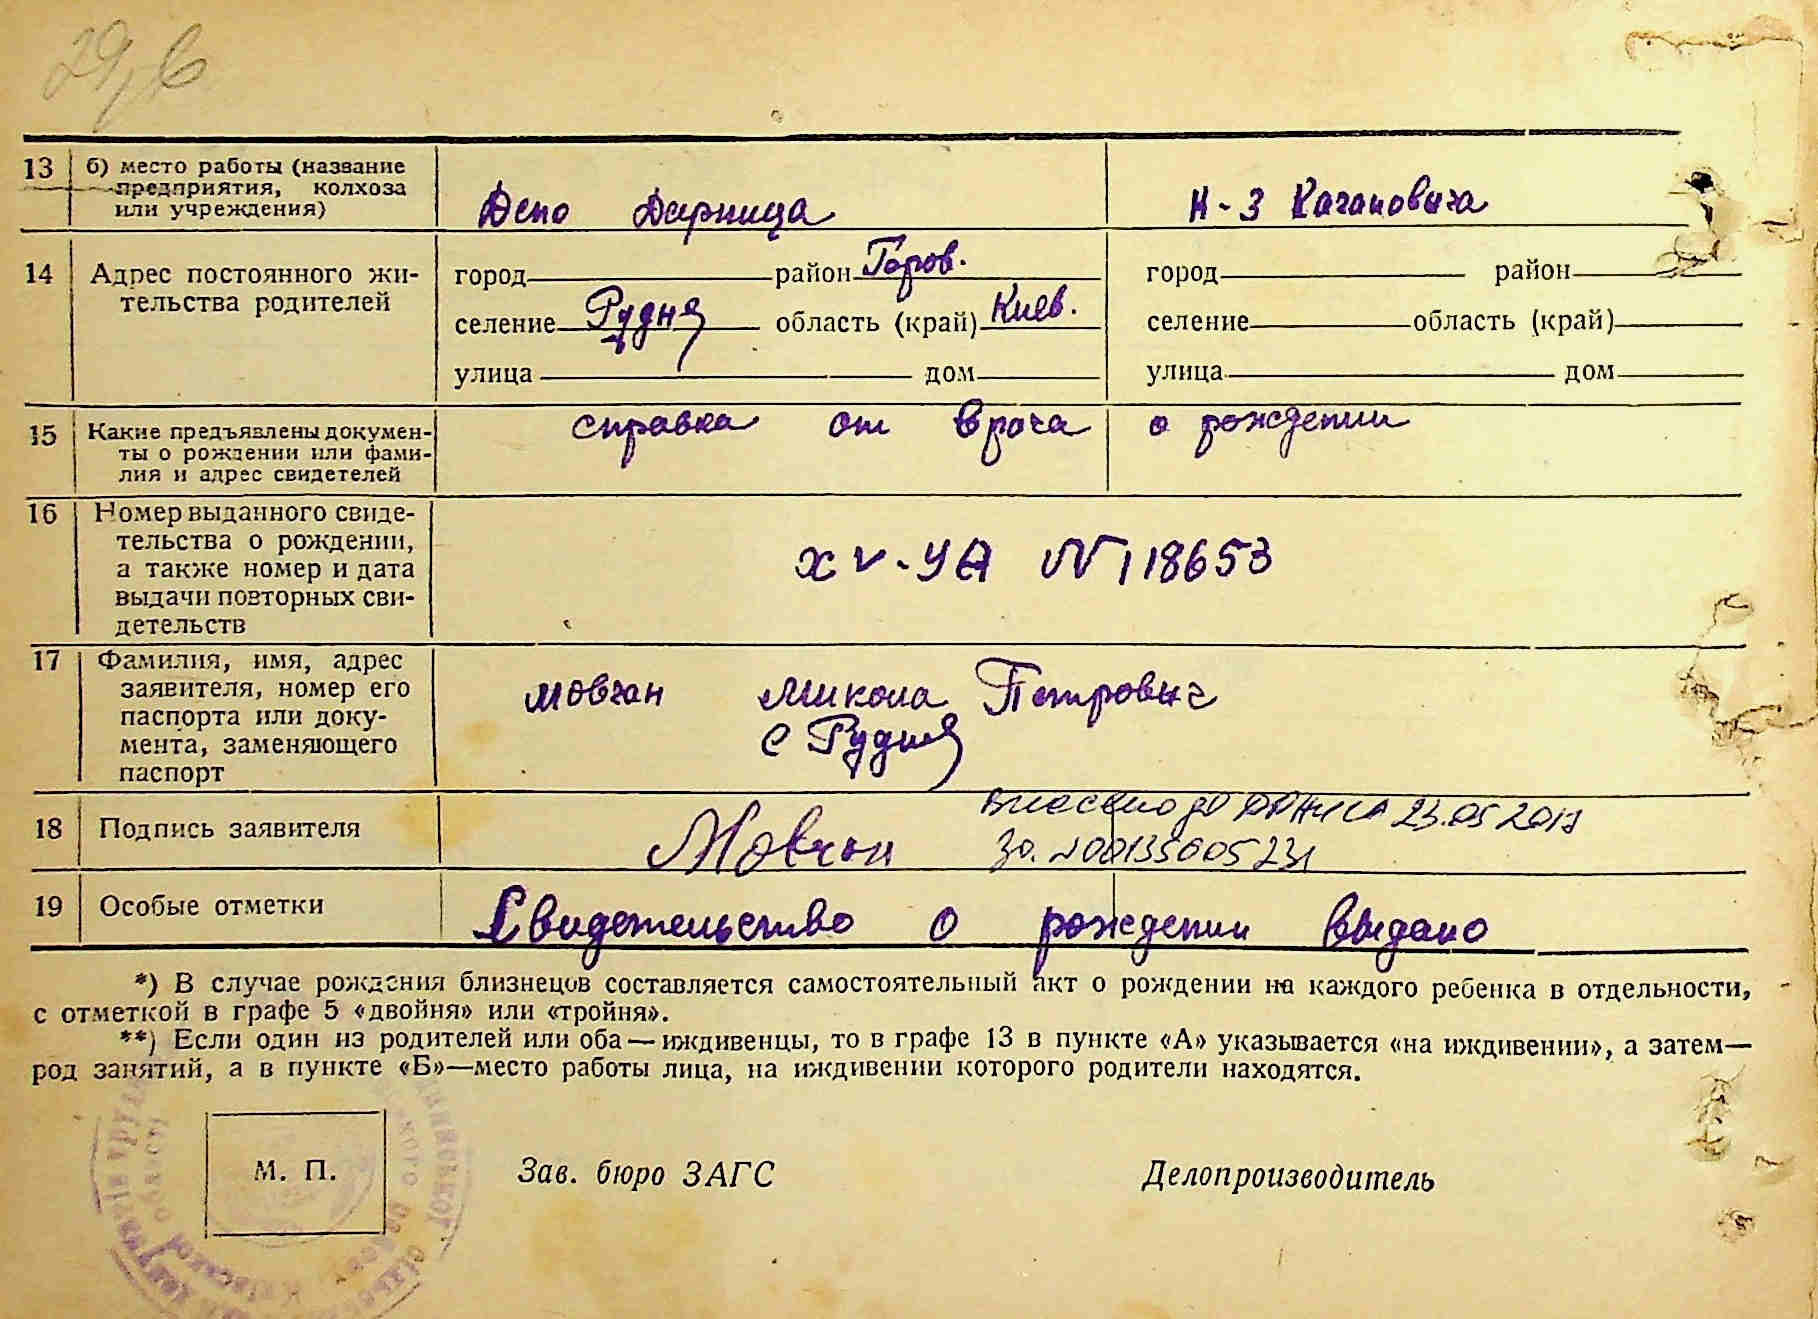 29, в
13 б) место работы (название
предприятия, колхоза
или учреждения)
Депо Дарница К-З Кагановича
14 Адрес постоянного жи-
тельства родителей
город район Боров. город район
селение Рудня область (край) Киев. селение область (край)
улица дом улица дом
15 Какие предъявлены докумен-
ты о рождении или фами-
лия и адрес свидетелей
справка от врача о рождении
16 Номер выданного свиде-
тельства о рождении,
а также номер и дата
выдачи повторных сви-
детельств
XV-УА N 118653
17 Фамилия, имя, адрес
заявителя, номер его
паспорта или доку-
мента, заменяющего
паспорт
Мовчан Микола Петрович
с Рудня
18 Подпись заявителя
Мовчан
Внесено до ДРАЦСА 23.05 2017
За. N00135605231
19 Особые отметки
Свидетельство о рождении выдано
*) В случае рождения близнецов составляется самостоятельный акт о рождении на каждого ребенка в отдельности,
с отметкой в графе 5 «двойня» или «тройня».
**) Если один из родителей или оба — иждивенцы, то в графе 13 в пункте «А» указывается «на иждивении», а затем—
род занятий, а в пункте «Б»—место работы лица, на иждивении которого родители находятся.
М. П. Зав. бюро ЗАГС Делопроизводитель